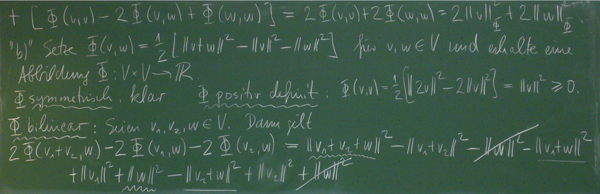 + [ Φ(v,v) − 2 Φ(v,w) + Φ(w,w) ] = 2 Φ(v,v) + 2 Φ(w,w) = 2‖v‖²_Φ + 2‖w‖²_Φ.
"b)" Setze Φ(v,w) = ½ [ ‖v+w‖² − ‖v‖² − ‖w‖² ] für v,w ∈ V und erhalte eine
Abbildung Φ : V × V → ℝ
Φ symmetrisch, klar Φ positiv definit: Φ(v,v) = ½ [ ‖2v‖² − 2‖v‖² ] = ‖v‖² ⩾ 0.
Φ bilinear: Seien v₁, v₂, w ∈ V. Dann gilt
2 Φ(v₁+v₂,w) − 2 Φ(v₁,w) − 2 Φ(v₂,w) = ‖v₁+v₂+w‖² − ‖v₁+v₂‖² − ‖w‖² − ‖v₁+w‖²
+ ‖v₁‖² + ‖w‖² − ‖v₂+w‖² + ‖v₂‖² + ‖w‖²